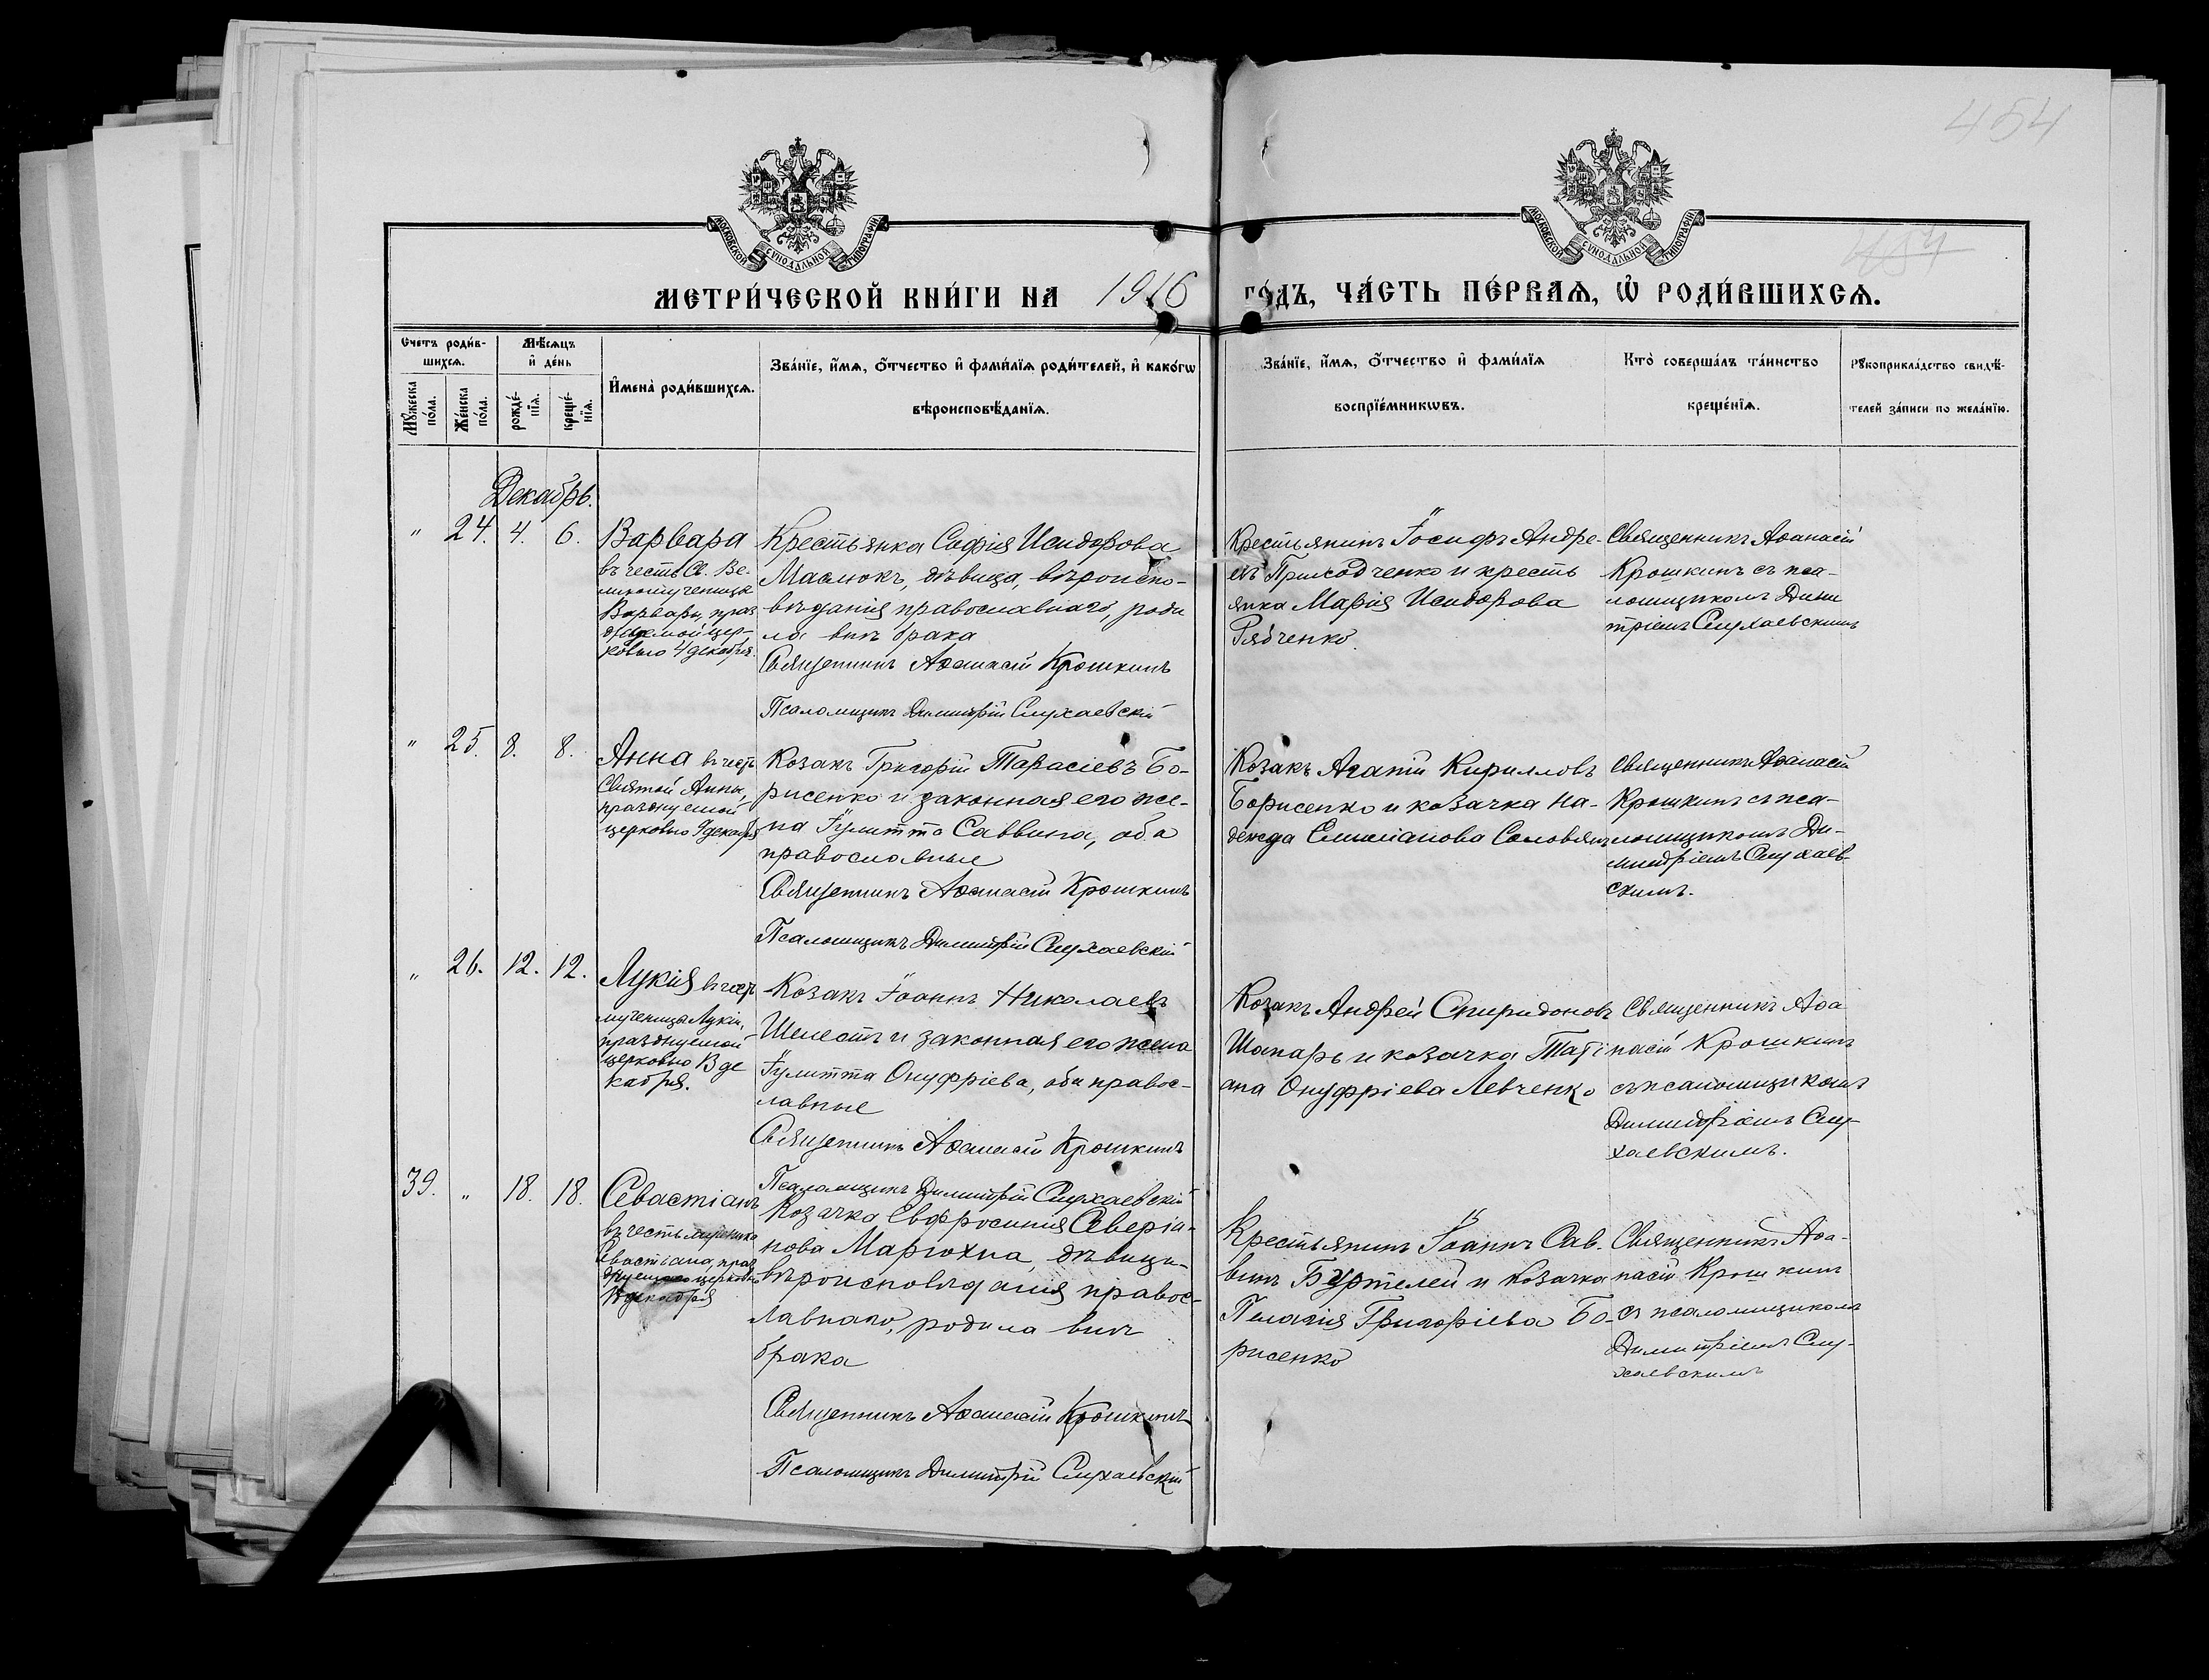 454
МОСКОВСКОЙ СѴНОДАЛЬНОЙ ТИПОГРАФІИ
МОСКОВСКОЙ СѴНОДАЛЬНОЙ ТИПОГРАФІИ
454
МЕТРИ́ЧЕСКОЙ КНИ́ГИ НА 1916 ГО́ДЪ, ЧА́СТЬ ПЕ́РВАѦ, Ѽ РОДИ́ВШИХСѦ.
Счетъ роди́в-
шихсѧ.
Мꙋжеска по́ла.
Же́нска по́ла.
Мѣ́сѧцъ
и҆ де́нь
рожде́-
нїѧ.
креще́-
нїѧ.
И҆мена̀ роди́вшихсѧ.
Зва́нїе, и҆́мѧ, ѻ҆́тчество и҆ фами́лїѧ роди́телей, и҆ како́гѡ
вѣроисповѣ́данїѧ.
Зва́нїе, и҆́мѧ, ѻ҆́тчество и҆ фами́лїѧ
воспрїе́мникѡвъ.
Кто̀ соверша́лъ та́инство
креще́нїѧ.
Рꙋкоприкла́дство свидѣ́-
телей за́писи по жела́нїю.
Декабрь.
" 24. 4. 6.
Варвара
въ честь Св. Ве-
ликомученицы
Варвары, праз
днуемой цер-
ковью 4 декабря.
Крестьянка Софія Исидорова
Маслюкъ, дѣвица, вѣроиспо-
вѣданія православнаго, роди
ла внѣ брака
Священникъ Аѳанасій Крошкинъ
Псаломщикъ Димитрій Слухаевскій
Крестьянинъ Іосифъ Андре-
евъ Приходченко и кресть
янка Марія Исидорова
Рябченко.
Священникъ Аѳанасій
Крошкинъ съ пса-
ломщикомъ Дими
тріемъ Слухаевскимъ
" 25. 8. 8.
Анна въ честь
Святой Анны,
празднуемой
церковью 9 декабря
Козакъ Григорій Тарасіевъ Бо-
рисенко и законная его же-
на Іулитта Саввина, оба
православные
Священникъ Аѳанасій Крошкинъ
Псаломщикъ Димитрій Слухаевскій
Козакъ Агапій Кирилловъ
Борисенко и козачка На-
дежда Емиліанова
Священникъ Аѳанасій
Крошкинъ съ пса-
ломщикомъ Ди-
митріемъ Слухаев-
скимъ.
" 26. 12. 12.
Лукія въ честь
мученицы Лукіи,
празднуемой
церковью 13 де
кабря.
Козакъ Іоаннъ Николаевъ
Шелестъ и законная его жена
Іулитта Онуфріева, оба правос-
лавные
Священникъ Аѳанасій Крошкинъ
Псаломщикъ Димитрій Слухаевскій
Козакъ Андрей Спиридоновъ
Шапарь и козачка Таті
ана Онуфріева Левченко
Священникъ Аѳа
насій Крошкинъ
съ псаломщикомъ
Димитріемъ Слу-
хаевскимъ.
39. " 18. 18.
Севастіанъ
въ честь мученика
Севастіана, праз
днуемаго церковью
18 декабря
Козачка Евфросинія Северіа-
нова Марюхна, дѣвица
вѣроисповѣданія правос-
лавнаго, родила внѣ
брака
Священникъ Аѳанасій Крошкинъ
Псаломщикъ Димитрій Слухаевскій
Крестьянинъ Іоаннъ Сав-
винъ и козачка
Пелагія Григоріева Бо-
рисенко
Священникъ Аѳа-
насій Крошкинъ
съ псаломщикомъ
Димитріемъ Слу-
хаевскимъ